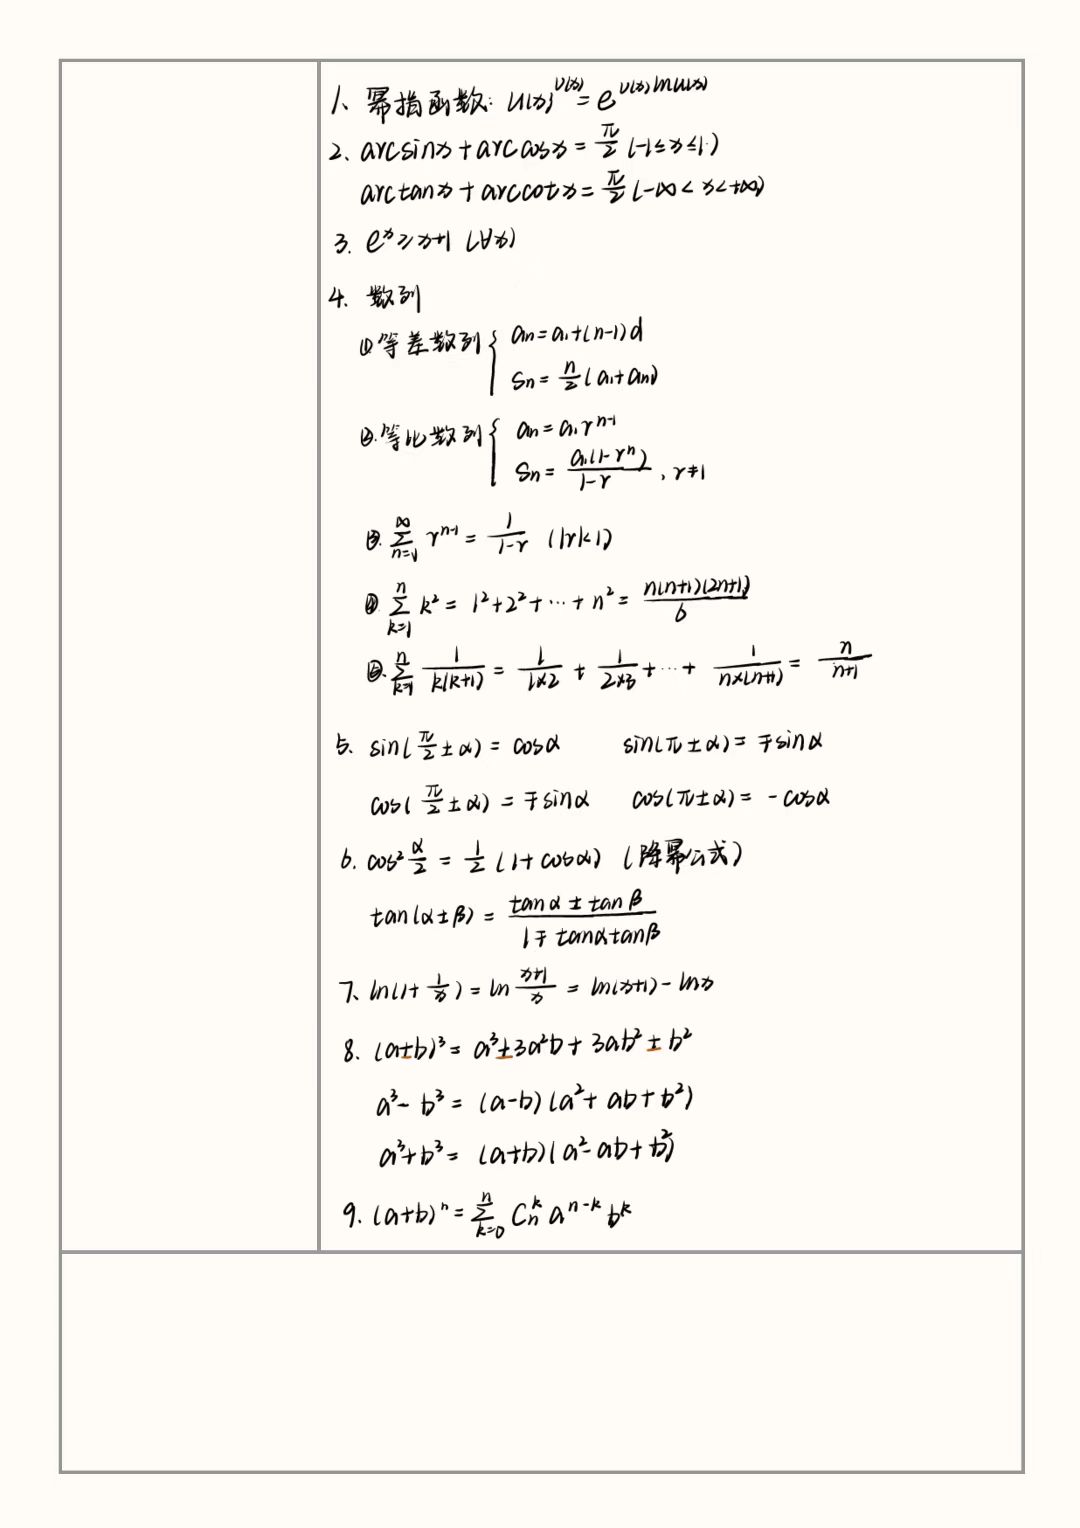 1、幂指函数: u(x)^v(x) = e^v(x)lnu(x)
2、arcsinx + arccosx = π/2 (-1≤x≤1)
arctanx + arccotx = π/2 (-∞<x<+∞)
3. e^x ≥ x+1 (∀x)
4、数列
①等差数列{ an = a1+(n-1)d
Sn = n/2(a1+an)
②.等比数列{ an = a1r^n-1
Sn = a1(1-r^n)/1-r , r≠1
③. ∑_{n=1}^{∞} r^n-1 = 1/1-r (|r|<1)
④ ∑_{k=1}^{n} k² = 1²+2²+⋯+n² = n(n+1)(2n+1)/6
⑤. ∑_{k=1}^{n} 1/k(k+1) = 1/1×2 + 1/2×3 +⋯+ 1/n×(n+1) = n/n+1
5、sin(π/2±α) = cosα sin(π±α) = ∓sinα
cos(π/2±α) = ∓sinα cos(π±α) = -cosα
6. cos²α/2 = 1/2(1+cosα) (降幂公式)
tan(α±β) = tanα±tanβ/1∓tanαtanβ
7、ln(1+1/x) = ln x+1/x = ln(x+1)-lnx
8. (a±b)³ = a³±3a²b+3ab²±b²
a³-b³ = (a-b)(a²+ab+b²)
a³+b³ = (a+b)(a²-ab+b²)
9. (a+b)^n = ∑_{k=0}^{n} C_n^k a^n-k b^k